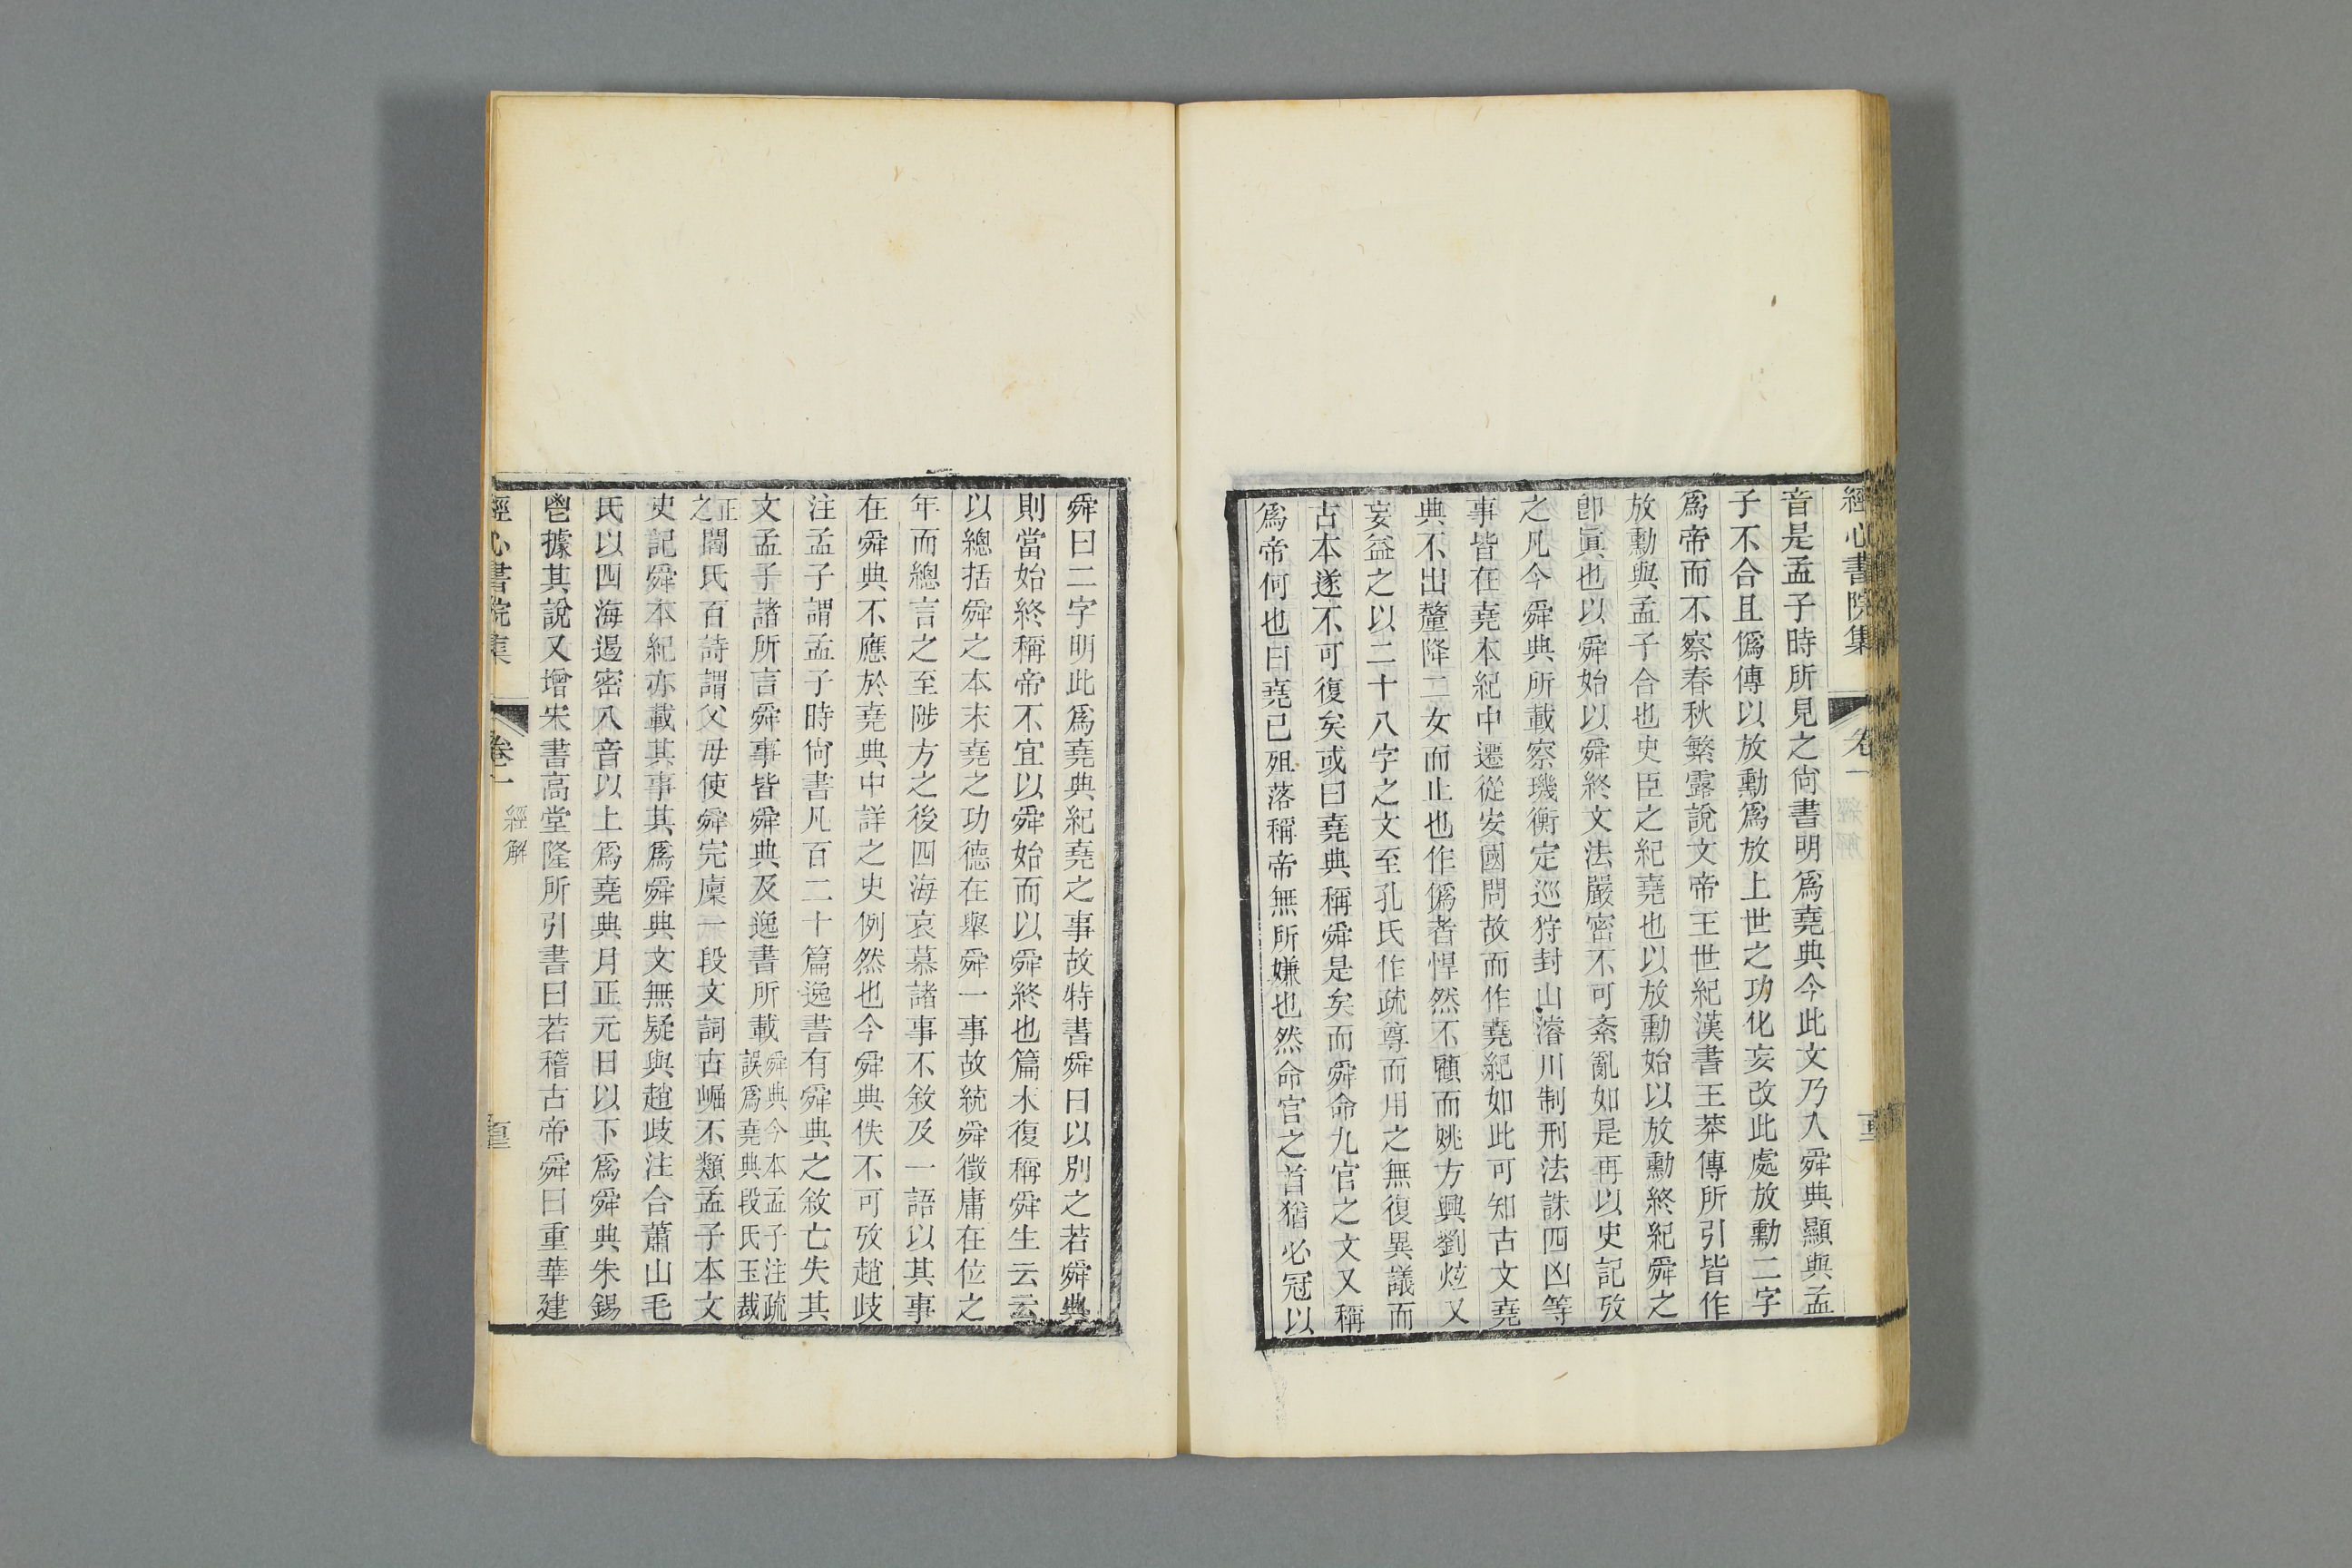 經心書院集 卷一
音是孟子時所見之尙書明爲堯典今此文乃入舜典顯與孟
子不合且僞傳以放勳爲放上世之功化妄改此處放勳二字
爲帝而不察春秋繁露說文帝王世紀漢書王莽傳所引皆作
放勳與孟子合也史臣之紀堯也以放勳始以放勳終紀舜之
卽眞也以舜始以舜終文法嚴密不可紊亂如是再以史記攷
之凡今舜典所載察璣衡定巡狩封山濬川制刑法誅四凶等
事皆在堯本紀中遷從安國問故而作堯紀如此可知古文堯
典不出釐降二女而止也作僞者悍然不顧而姚方興劉炫又
妄益之以二十八字之文至孔氏作疏尊而用之無復異議而
古本遂不可復矣或曰堯典稱舜是矣而舜命九官之文又稱
爲帝何也曰堯已殂落稱帝無所嫌也然命官之首猶必冠以
舜曰二字明此爲堯典紀堯之事故特書舜曰以別之若舜典
則當始終稱帝不宜以舜始而以舜終也篇末復稱舜生云云
以總括舜之本末堯之功德在舉舜一事故統舜徵庸在位之
年而總言之至陟方之後四海哀慕諸事不敘及一語以其事
在舜典不應於堯典中詳之史例然也今舜典佚不可攷趙歧
注孟子謂孟子時尙書凡百二十篇逸書有舜典之敘亡失其
文孟子諸所言舜事皆舜典及逸書所載舜典今本孟子注疏誤爲堯典段氏玉裁
正之閻氏百詩謂父母使舜完廩一段文詞古崛不類孟子本文
史記舜本紀亦載其事其爲舜典文無疑與趙歧注合蕭山毛
氏以四海遏密八音以上爲堯典月正元日以下爲舜典朱錫
鬯據其說又增宋書高堂隆所引書曰若稽古帝舜曰重華建
經心書院集 卷一 經解